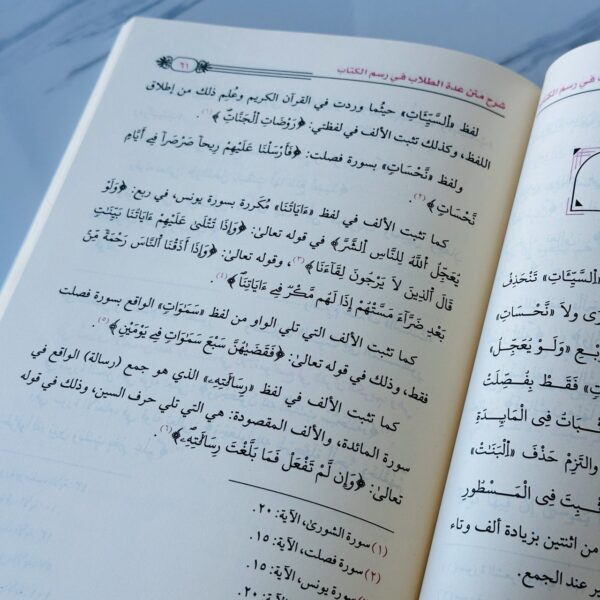 شرح متن عدة الطلاب في رسم الكتاب
٦١
لفظ «اِ۬لسَّيِّـَٔاتِ» حيثُما وردت في القرآن الكريم وعُلِم ذلك من إطلاق
اللفظ، وكذلك تثبت الألف في لفظتي: ﴿رَوْضَاتِ اِ۬لْجَنَّاتِ﴾(١).
ولفظ «نَّحْسَاتٖ» بسورة فصلت: ﴿فَأَرْسَلْنَا عَلَيْهِمْ رِيحاٗ صَرْصَراٗ فِےٓ أَيَّامٖ
نَّحْسَاتٖ﴾(٢).
كما تثبت الألف في لفظ «ءَايَاتُنَا» مُكَررة بسورة يونس، في ربع: ﴿وَلَوْ
يُعَجِّلُ اُ۬للَّهُ لِلنَّاسِ اِ۬لشَّرَّ﴾ في قوله تعالىٰ: ﴿وَإِذَا تُتْلَىٰ عَلَيْهِمْ ءَايَاتُنَا بَيِّنَٰتٖ
قَالَ اَ۬لذِينَ لَا يَرْجُونَ لِقَآءَنَا﴾(٣)، وقوله تعالىٰ: ﴿وَإِذَآ أَذَقْنَا اَ۬لنَّاسَ رَحْمَةٗ مِّنۢ
بَعْدِ ضَرَّآءَ مَسَّتْهُمْ إِذَا لَهُم مَّكْرٞ فِےٓ ءَايَاتِنَا﴾(٤).
كما تثبت الألف التي تلي الواو من لفظ «سَمَٰوَاتٖ» الواقع بسورة فصلت
فقط، وذلك في قوله تعالىٰ: ﴿فَقَضَيٰهُنَّ سَبْعَ سَمَٰوَاتٖ فِے يَوْمَيْنِ﴾(٥).
كما تثبت الألف في لفظ «رِسَالَٰتِهِۦ» الذي هو جمع (رسالة) الواقع في
سورة المائدة، والألف المقصودة: هي التي تلي حرف السين، وذلك في قوله
تعالىٰ: ﴿وَإِن لَّمْ تَفْعَلْ فَمَا بَلَّغْتَ رِسَالَٰتِهِۦ﴾(٦).
(١) سورة الشورىٰ، الآية: ٢٠.
(٢) سورة فصلت، الآية: ١٥.
سورة يونس، الآية: ١٥.
الآية: ٢٠.
في رسم الكتاب
«اِ۬لسَّيِّـَٔاتِ» تَنْحَذِفُ
وَلاَ «نَّحْسَاتٖ»
«وَلَوْ يُعَجِّلُ
فَقَطْ بِفُصِّلَتْ
فِى الْمَايِدَةِ
وَالْتَزِمْ حَذْفَ «اِ۬لْبَنَٰتْ»
فِى الْمَسْطُورِ
من اثنتين بزيادة ألف وتاء
عند الجمع.